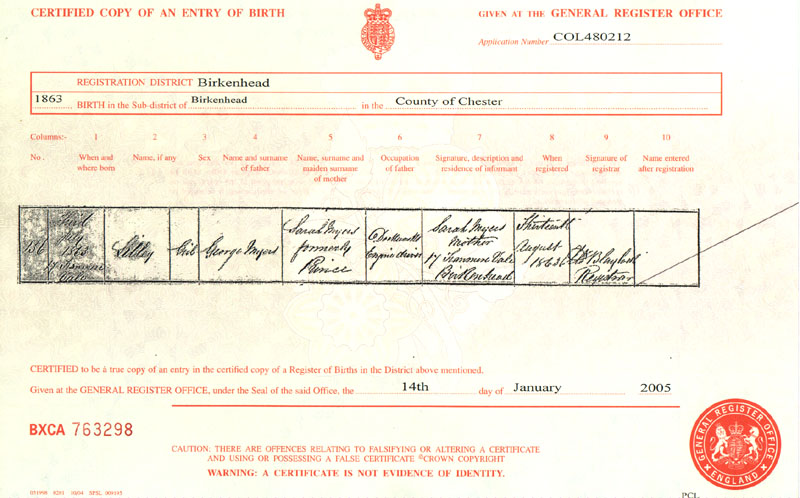 CERTIFIED COPY OF AN ENTRY OF BIRTH
GIVEN AT THE GENERAL REGISTER OFFICE
Application Number COL480212
REGISTRATION DISTRICT Birkenhead
1863 BIRTH in the Sub-district of Birkenhead in the County of Chester
Columns:- 1 2 3 4 5 6 7 8 9 10
No. When and where born Name, if any Sex Name and surname of father Name, surname and maiden surname of mother Occupation of father Signature, description and residence of informant When registered Signature of registrar Name entered after registration
236
1863
Girl
George Myers
Sarah Myers
formerly
Prince
Engine driver
Sarah Myers
Mother
17 Tranmere Vale
Birkenhead
Thirteenth
August
1863
Registrar
CERTIFIED to be a true copy of an entry in the certified copy of a Register of Births in the District above mentioned.
Given at the GENERAL REGISTER OFFICE, under the Seal of the said Office, the 14th day of January 2005
BXCA 763298
CAUTION: THERE ARE OFFENCES RELATING TO FALSIFYING OR ALTERING A CERTIFICATE
AND USING OR POSSESSING A FALSE CERTIFICATE ©CROWN COPYRIGHT
WARNING: A CERTIFICATE IS NOT EVIDENCE OF IDENTITY.
GENERAL REGISTER OFFICE
ENGLAND
PCL